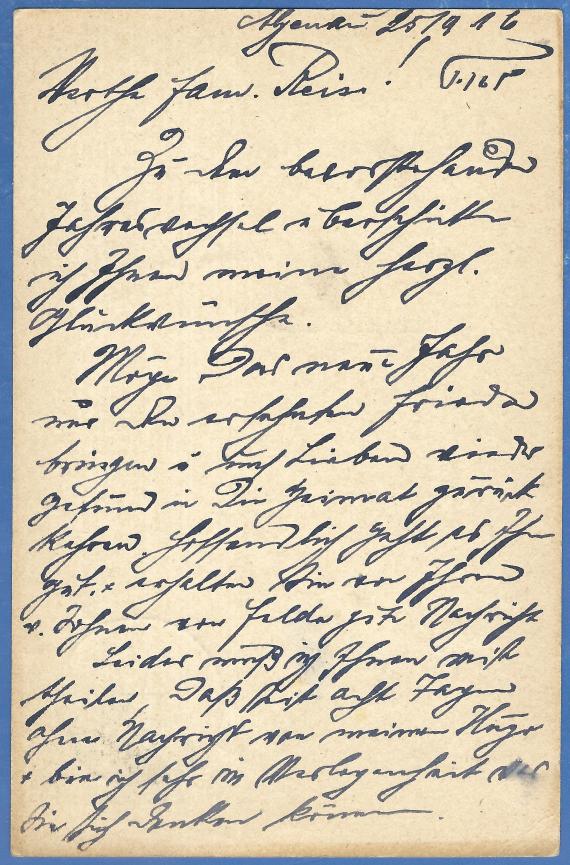 25/9 16
Werthe Fam. Reis!
Zu dem bevorstehenden
Jahreswechsel überschicke
ich Ihnen meine herzl.
Glückwünsche.
Möge das neue Jahr
uns den ersehnten Frieden
bringen u. uns Lieben wieder
gesund in die Heimat zurück
kehren. Hoffendlich geht es Ihn
gut. + erhalten Sie von Ihren
l. Söhnen vom Felde gute Nachricht
Leider muß ich Ihnen mit
theilen, daß seit acht Tagen
ohne Nachricht von meinem Hugo
+ bin ich sehr in Verlegenheit was
Sie sich denken können.